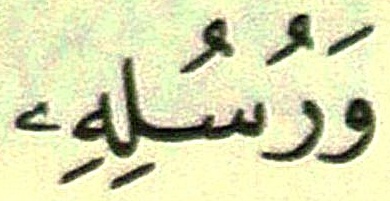 وَرُسُلِهِۦ